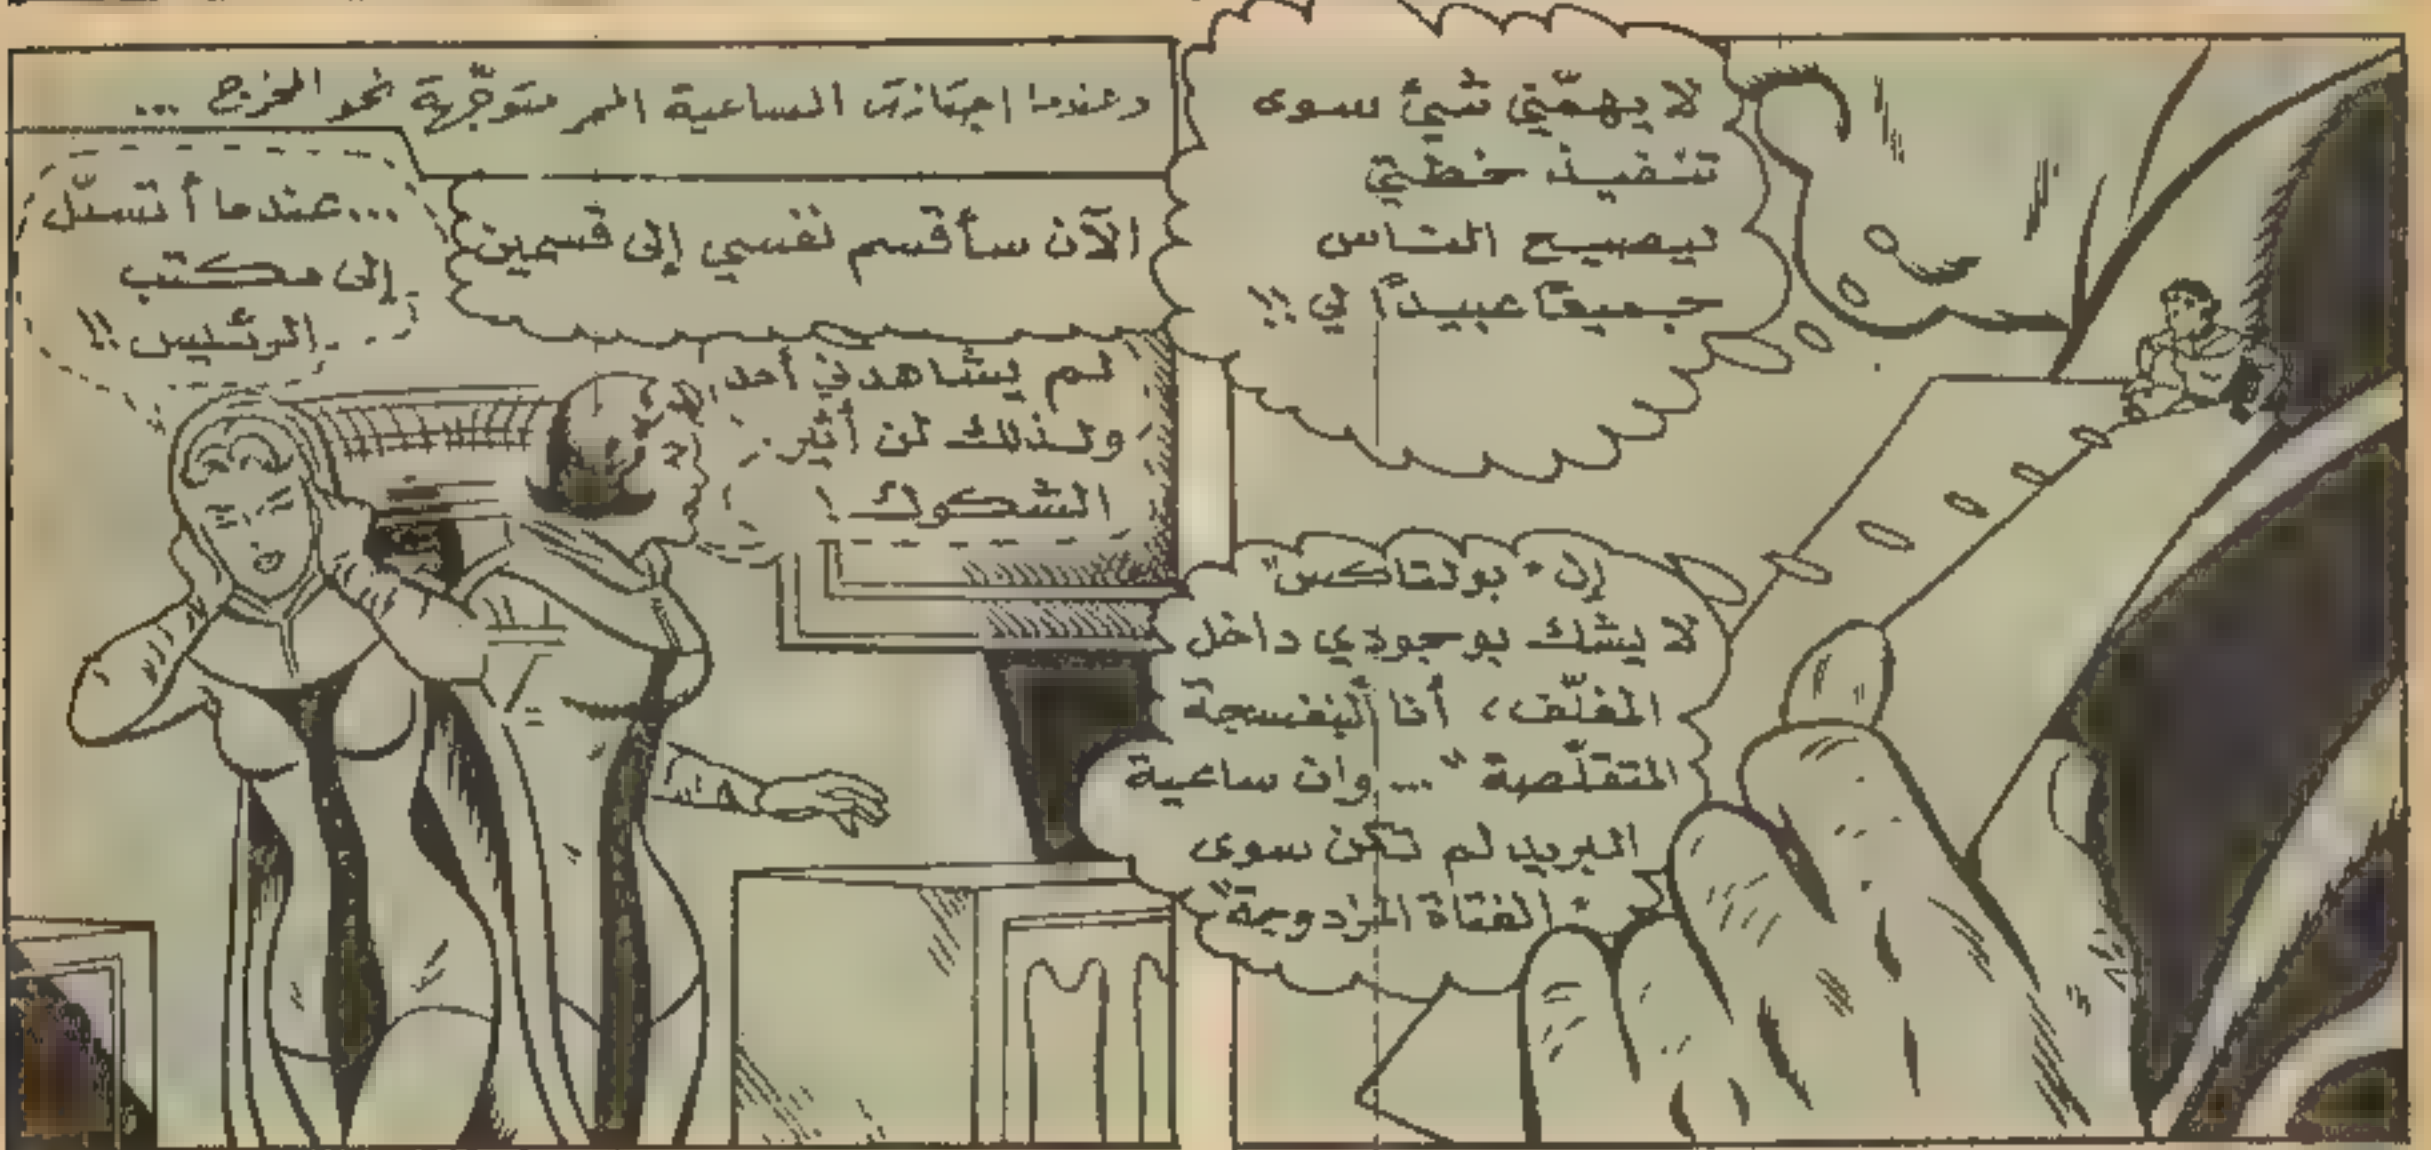 لا يهمّني شيئ سوى
تنفيذ خطّتي
ليصبح النّاس
جميعاً عبيداً لي !!
إن "بولتاكس"
لا يشك بوجودي داخل
المغلّف، أنا "البنفسجة
المتقلّصة" ... وان ساعية
البريد لم تكن سوى
"الفتاة المزدوجة"
وعندما اجتازت الساعية الممر متوجّهة نحو المخرج ...
الآن سأقسم نفسي إلى قسمين
لم يشاهدني أحد
ولذلك لن أثير
الشكوك !
...عندما أتسلّل
إلى مكتب
الرئيس !!